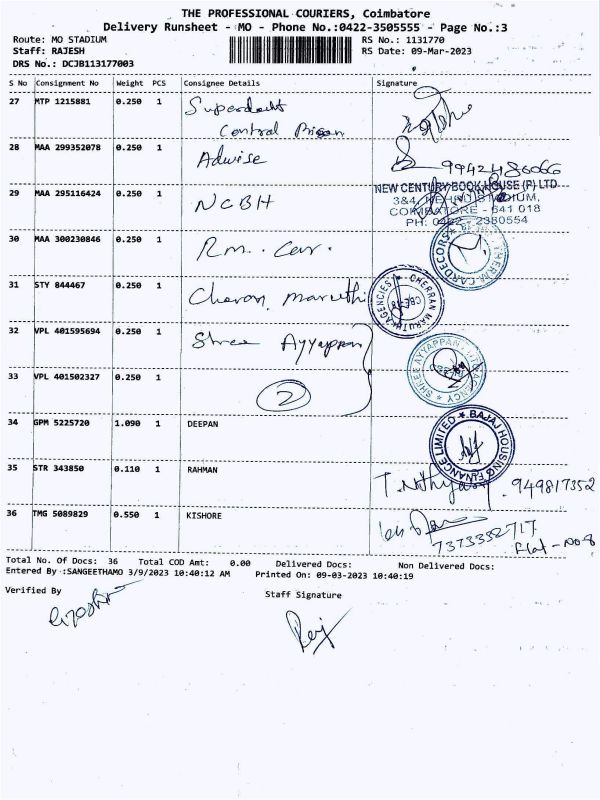 THE PROFESSIONAL COURIERS, Coimbatore
Delivery Runsheet - MO - Phone No.:0422-3505555 - Page No.:3
Route: MO STADIUM RS No.: 1131770
Staff: RAJESH RS Date: 09-Mar-2023
DRS No.: DCJB113177003
S No Consignment No Weight PCS Consignee Details Signature
27 MTP 1215881 0.250 1 Superdent
Central Prison
28 MAA 299352078 0.250 1 Adwise
29 MAA 295116424 0.250 1 NCBH
NEW CENTURY BOOK HOUSE (P) LTD
3&4, NEHRU STADIUM,
COIMBATORE - 641 018
PH: 0422 - 2380554
30 MAA 300230846 0.250 1 Rm. Car.
CARDECORS
31 STY 844467 0.250 1 Charan Maruthi
CHERRAN MARUTHI AGENCIES
32 VPL 401595694 0.250 1 Shree Ayyappan
SHREE AYYAPPAN AGENCY
33 VPL 401502327 0.250 1 2
34 GPM 5225720 1.090 1 DEEPAN
BAJAJ HOUSING FINANCE LIMITED
35 STR 343850 0.110 1 RAHMAN 949817352
36 TMG 5089829 0.550 1 KISHORE
7373332717
Flat - No 8
Total No. Of Docs: 36 Total COD Amt: 0.00 Delivered Docs: Non Delivered Docs:
Entered By :SANGEETHAMO 3/9/2023 10:40:12 AM Printed On: 09-03-2023 10:40:19
Verified By Staff Signature